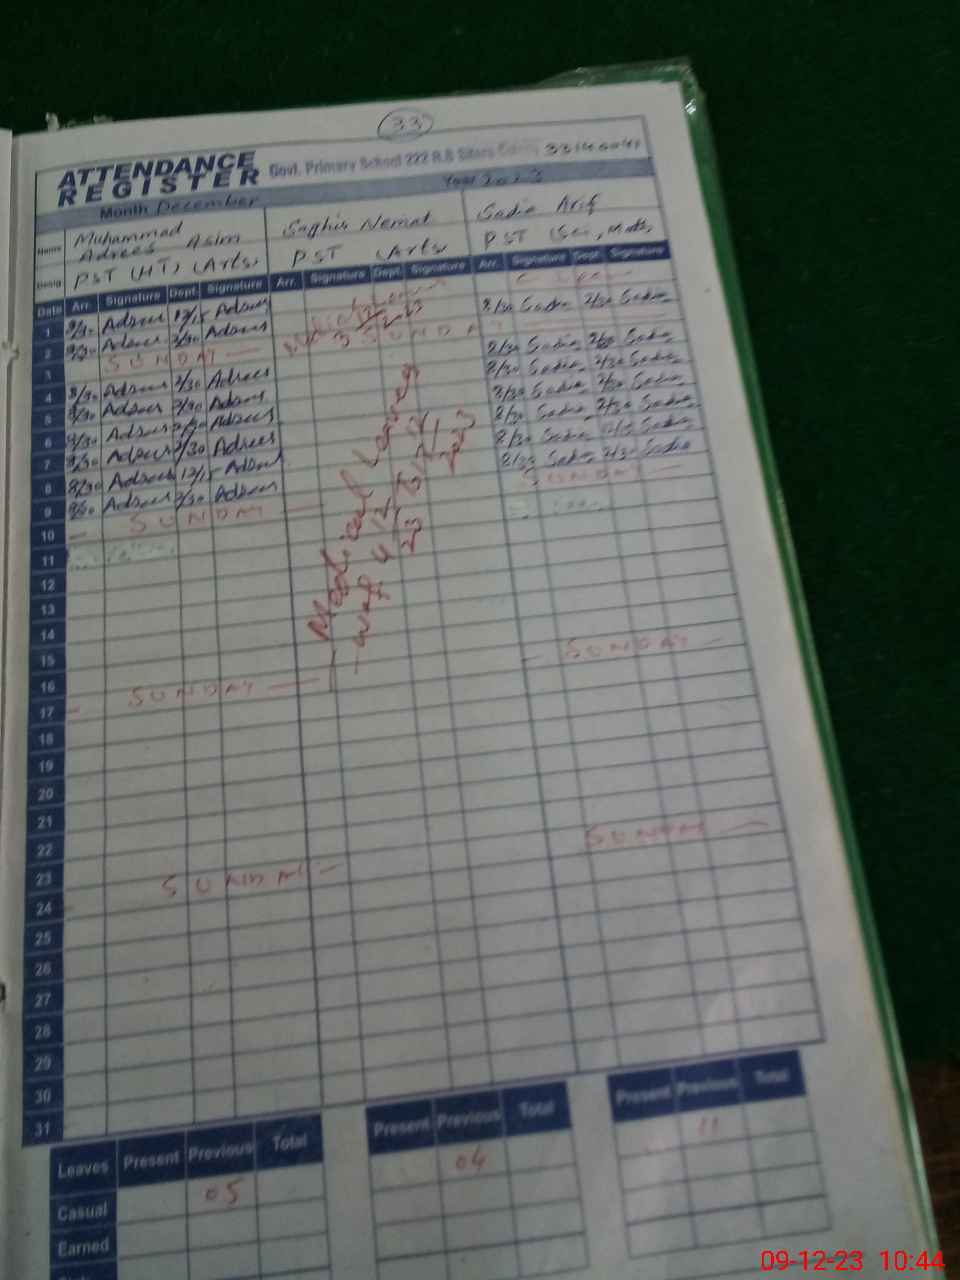 33
ATTENDANCE
REGISTER
Govt. Primary School 222 R.B Sitara
Month December
Year 2023
Name
Muhammad
Adrees Asim
Saghir Nemat
Sadia Arif
Desig
PST (HT) (Arts)
PST (Arts)
PST (Sci, Math)
Date Arr. Signature Dept. Signature Arr. Signature Dept. Signature Arr. Signature Dept. Signature
1 8/30 Adrees 12/15 Adrees
2 8/30 Adrees 2/30 Adrees 8/30 Sadia 2/30 Sadia
3 SUNDAY SUNDAY
4 8/30 Adrees 2/30 Adrees 8/30 Sadia 2/30 Sadia
5 8/30 Adrees 2/30 Adrees 8/30 Sadia 2/30 Sadia
6 8/30 Adrees 2/30 Adrees 8/30 Sadia 2/30 Sadia
7 8/30 Adrees 2/30 Adrees 8/30 Sadia 2/30 Sadia
8 8/30 Adrees 12/15 Adrees 8/30 Sadia 12/15 Sadia
9 8/30 Adrees 2/30 Adrees 8/30 Sadia 2/30 Sadia
10 SUNDAY SUNDAY
Medical Leaves
w.e.f 4/12/23
11
12
13
14
15
16
17 SUNDAY SUNDAY
18
19
20
21
22
23
24 SUNDAY SUNDAY
25
26
27
28
29
30
31
Leaves Present Previous Total Present Previous Total Present Previous Total
Casual 05 04 11
Earned
09-12-23 10:44